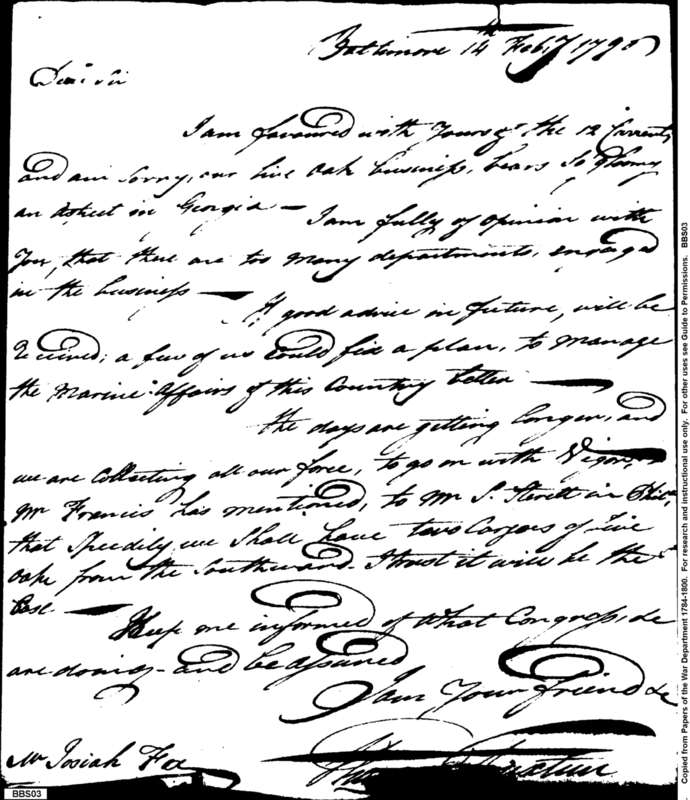 Baltimore 14th Feby 1795
Dear Sir
I am favoured with Yours of the 12 Current,
and am sorry, our live Oak business, bears so gloomy
an aspect in Georgia — I am fully of Opinion with
You, that there are too many departments, engaged
in the business — If good advice in future, will be
received; a few of us could fix a plan, to manage
the Marine Affairs of this Country better —
the days are getting longer, and
we are Collecting all our force, to go on with Vigour,
Mr Francis has mentioned, to Mr S. Sterett in Phila,
that Speedily we Shall have two Cargoes of live
oak from the Southward. I trust it will be the
Case — Keep me informed of what Congress, &c
are doing - and be assured
I am Your friend &c
Mr Josiah Fox
Truxtun
BBS03
Copied from Papers of the War Department 1784-1800. For research and instructional use only. For other uses see Guide to Permissions. BBS03